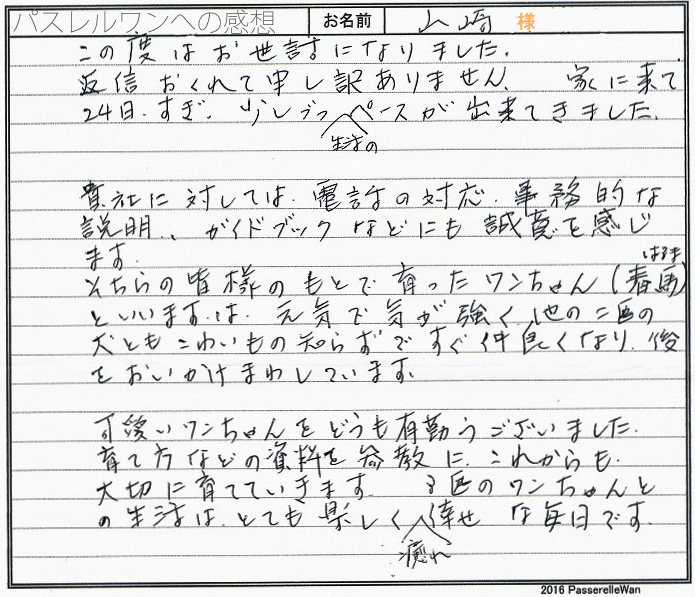 パスレルワンへの感想 お名前 山崎 様
この度はお世話になりました.
返信おくれて申し訳ありません. 家に来て
24日.すぎ. 少しづつ生活のペースが出来てきました.
貴社に対しては.電話の対応.事務的な
説明、ガイドブックなどにも誠意を感じ
ます.
そちらの皆様のもとで育ったワンちゃん(春馬はるま)
といいます.は.元気で気が強く他の二匹の
犬ともこわいもの知らずですぐ仲良くなり.後
をおいかけまわしています.
可愛いワンちゃんをどうも有勤うございました.
育て方などの資料を参教に.これからも.
大切に育てていきます. 3匹のワンちゃんと
の生活は.とても楽しく癒れ倖せな毎日です.
2016 PasserelleWan